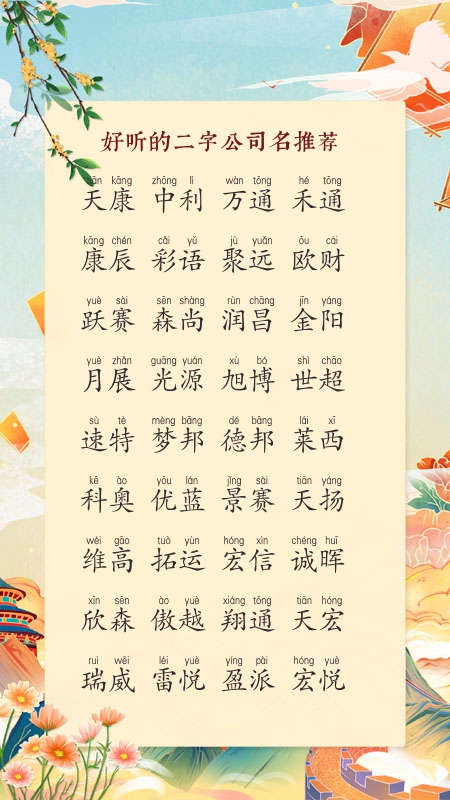 好听的二字公司名推荐
tiān kāng zhōng lì wàn tōng hé tōng
天康 中利 万通 禾通
kāng chén cǎi yǔ jù yuǎn ōu cái
康辰 彩语 聚远 欧财
yuè sài sēn shàng rùn chāng jīn yáng
跃赛 森尚 润昌 金阳
yuè zhǎn guāng yuán xù bó shì chāo
月展 光源 旭博 世超
sù tè mèng bāng dé bāng lái xī
速特 梦邦 德邦 莱西
kē ào yōu lán jǐng sài tiān yáng
科奥 优蓝 景赛 天扬
wéi gāo tuò yùn hóng xìn chéng huī
维高 拓运 宏信 诚晖
xīn sēn ào yuè xiáng tōng tiān hóng
欣森 傲越 翔通 天宏
ruì wēi léi yuè yíng pài hóng yuè
瑞威 雷悦 盈派 宏悦